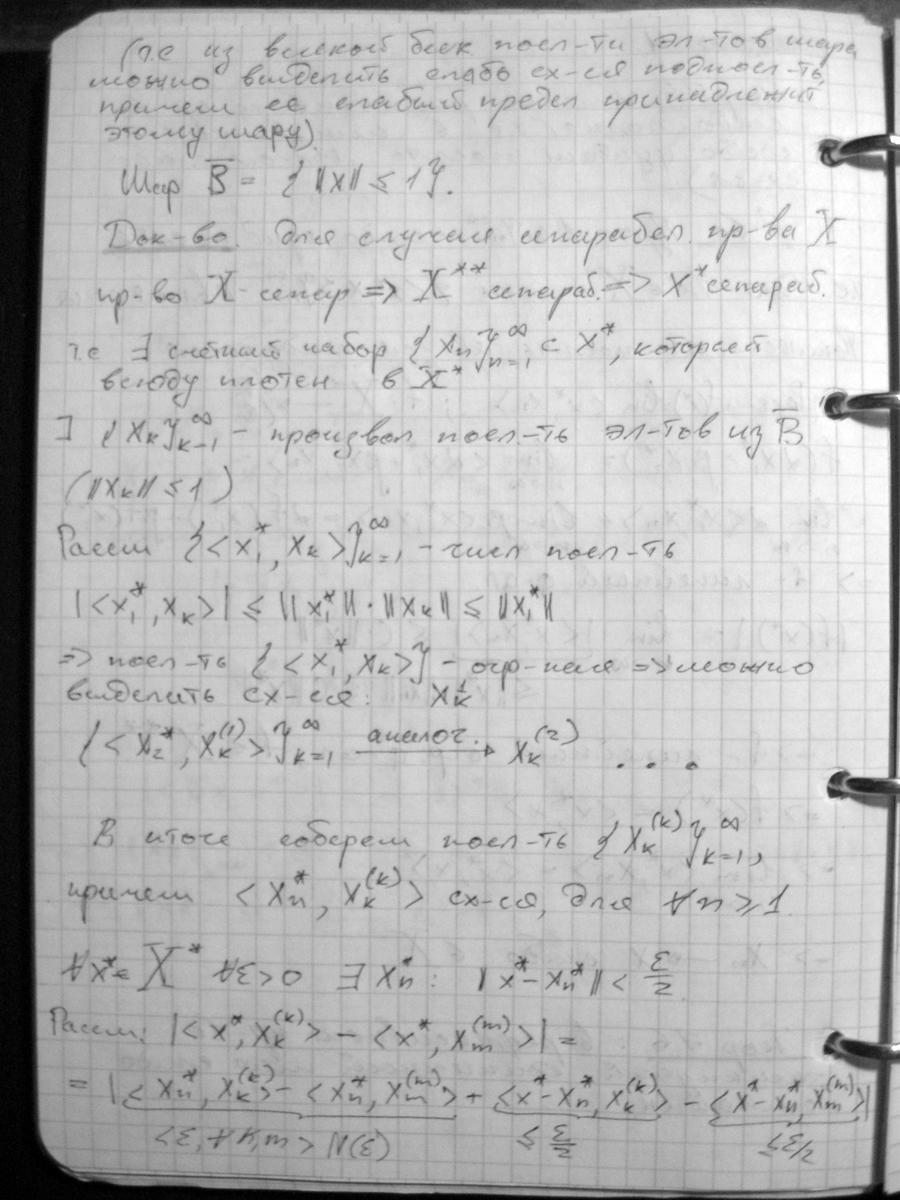 (т.е из всякой беск посл-ти эл-тов шара
можно выделить слабо сх-ся подпосл-ть,
причем ее слабый предел принадлежит
этому шару).
Шар B̅ = {‖x‖ ≤ 1}.
Док-во. для случая сепарабел. пр-ва X
пр-во X - сепар => X** сепараб. => X* сепараб.
т.е ∃ счётный набор {xₙ}ₙ₌₁^∞ ⊂ X*, который
всюду плотен в X*
∃ {xₖ}ₖ₌₁^∞ - произвол посл-ть эл-тов из B̅
(‖xₖ‖ ≤ 1)
Рассм {<x₁*, xₖ>}ₖ₌₁^∞ - числ посл-ть
|<x₁*, xₖ>| ≤ ‖x₁*‖ · ‖xₖ‖ ≤ ‖x₁*‖
=> посл-ть {<x₁*, xₖ>} - огр-ная => можно
выделить сх-ся: xₖ¹
{<x₂*, xₖ⁽¹⁾>}ₖ₌₁^∞ аналог. → xₖ⁽²⁾ . . .
В итоге соберем посл-ть {xₖ⁽ᵏ⁾}ₖ₌₁^∞,
причем <xₙ*, xₖ⁽ᵏ⁾> сх-ся, для ∀n ≥ 1
∀x* ∈ X* ∀ε>0 ∃ xₙ*: ‖x* - xₙ*‖ < ε/2
Рассм: |<x*, xₖ⁽ᵏ⁾> - <x*, xₘ⁽ᵐ⁾>| =
= |<xₙ*, xₖ⁽ᵏ⁾> - <xₙ*, xₘ⁽ᵐ⁾> + <x* - xₙ*, xₖ⁽ᵏ⁾> - <x* - xₙ*, xₘ⁽ᵐ⁾>|
<ε, ∀k,m > N(ε) ≤ ε/2 ≤ε/2